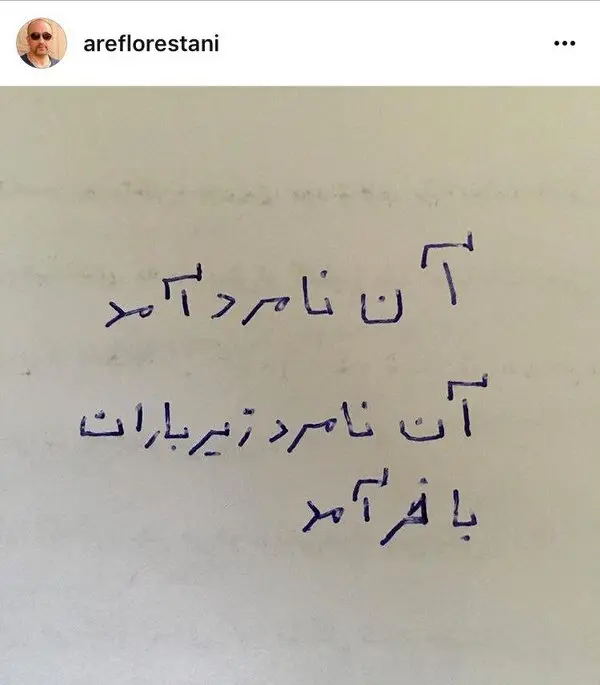 areflorestani
آن نامرد آمد
آن نامرد زیر بارات
با آمد